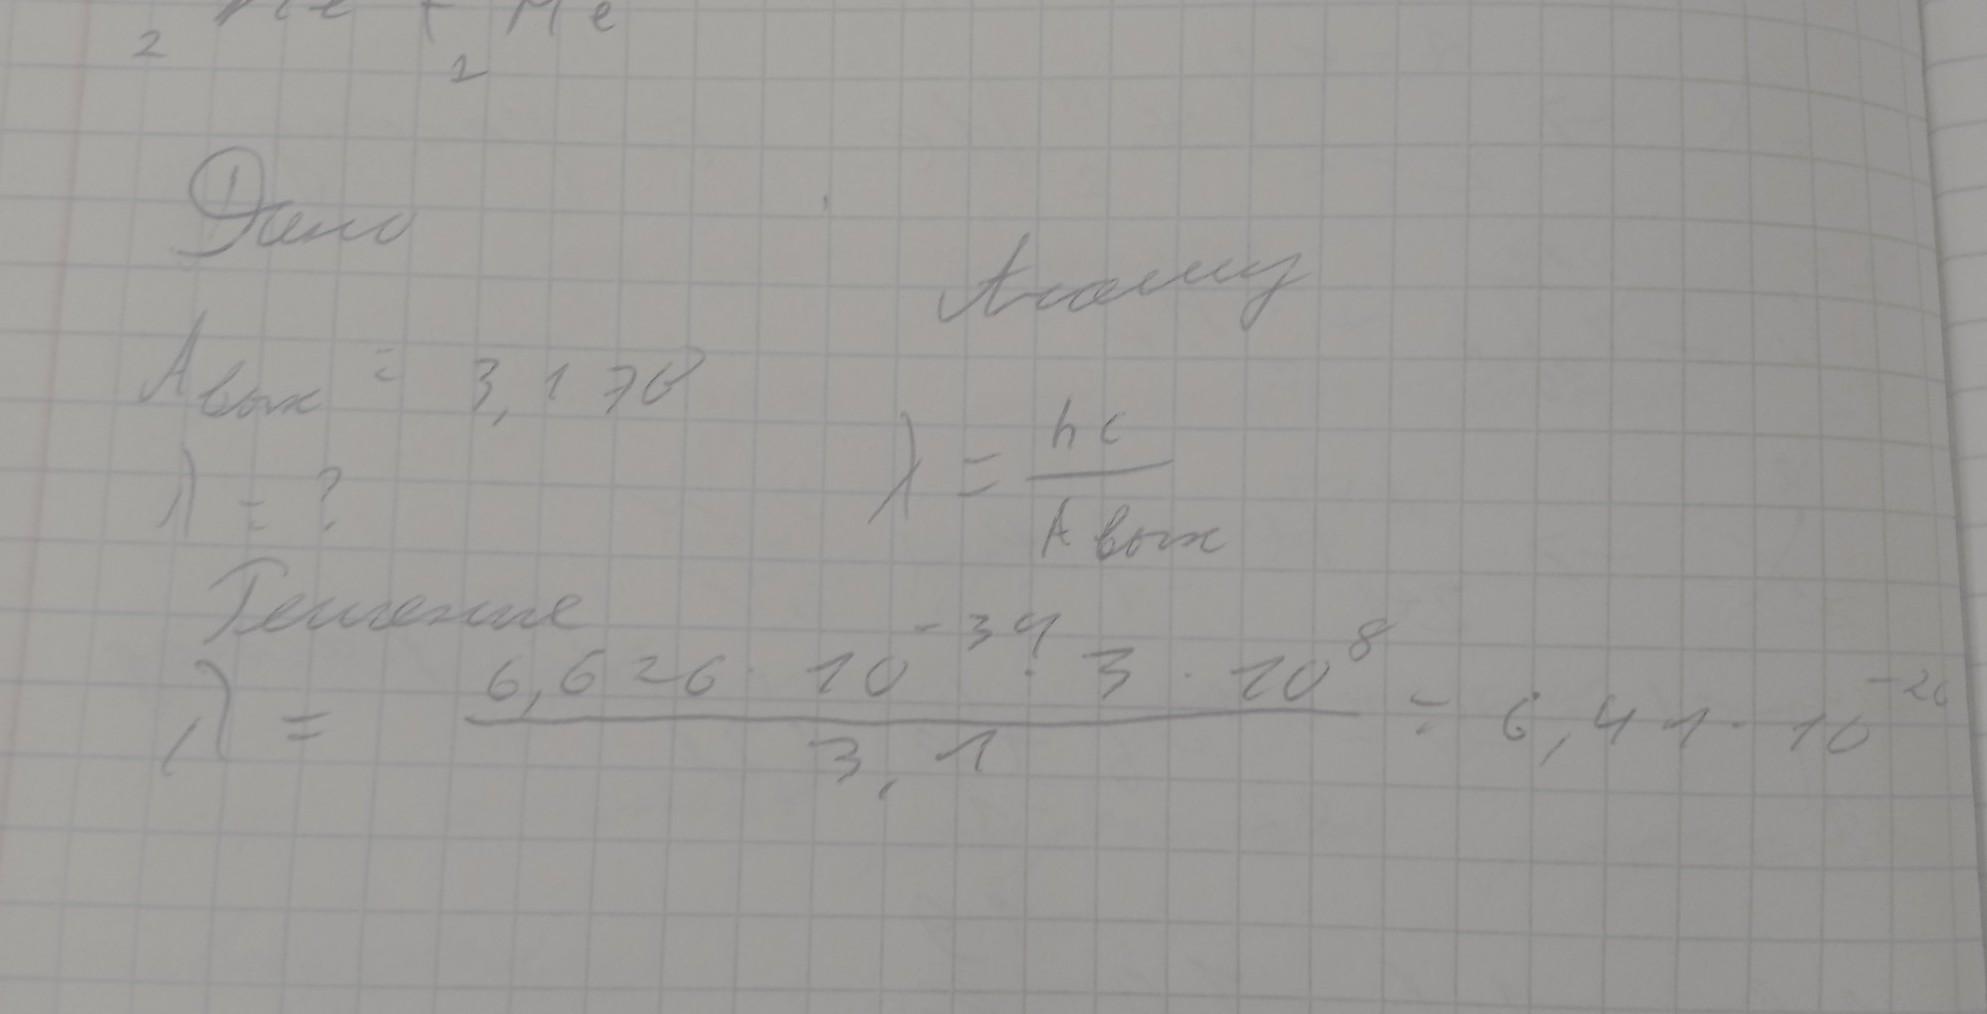 2 He + He
2
Дано
Анализ
Aвых = 3,1 эВ
λ = ?
λ = hc / Aвых
Решение
λ = 6,626 · 10^-34 · 3 · 10^8 / 3,1 = 6,41 · 10^-26